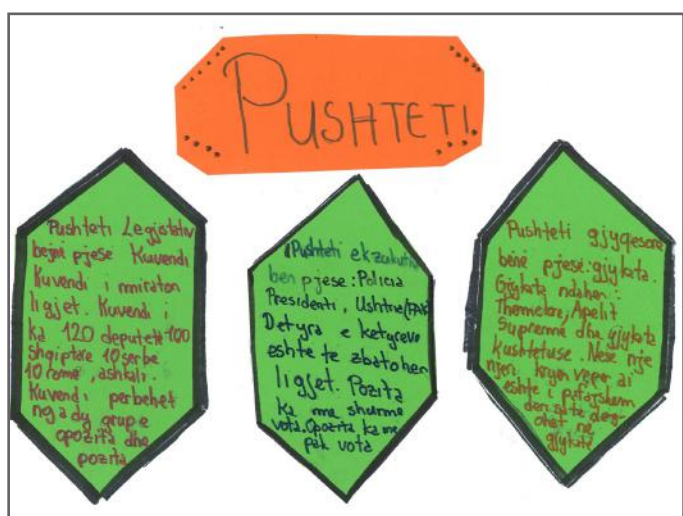 PUSHTETI
Pushteti Legjistativ
bejnë pjese Kuvendi
Kuvendi i mmiraton
ligjet. Kuvendi i
ka 120 deputetë 100
shqiptare 10 serbe
10 romë, ashkali.
Kuvendi perbehet
nga dy grupe
opozita dhe
pozita
Pushteti ekzekutiv
ben pjese: Policia
Presidenti, Ushtrie/FSK
Detyra e ketyreve
eshte te zbatohen
ligjet. Pozita
ka me shume
vota. Opozita ka me
pak vota
Pushteti gjyqesore
bënë pjesë: gjykata.
Gjykata ndahen:
Themelore, Apelit
Supreme dhe gjykata
kushtetuse. Nese nje
njeri kryen veper ai
eshte i pafajshem
deri sa te
ohet ne
gjykatë